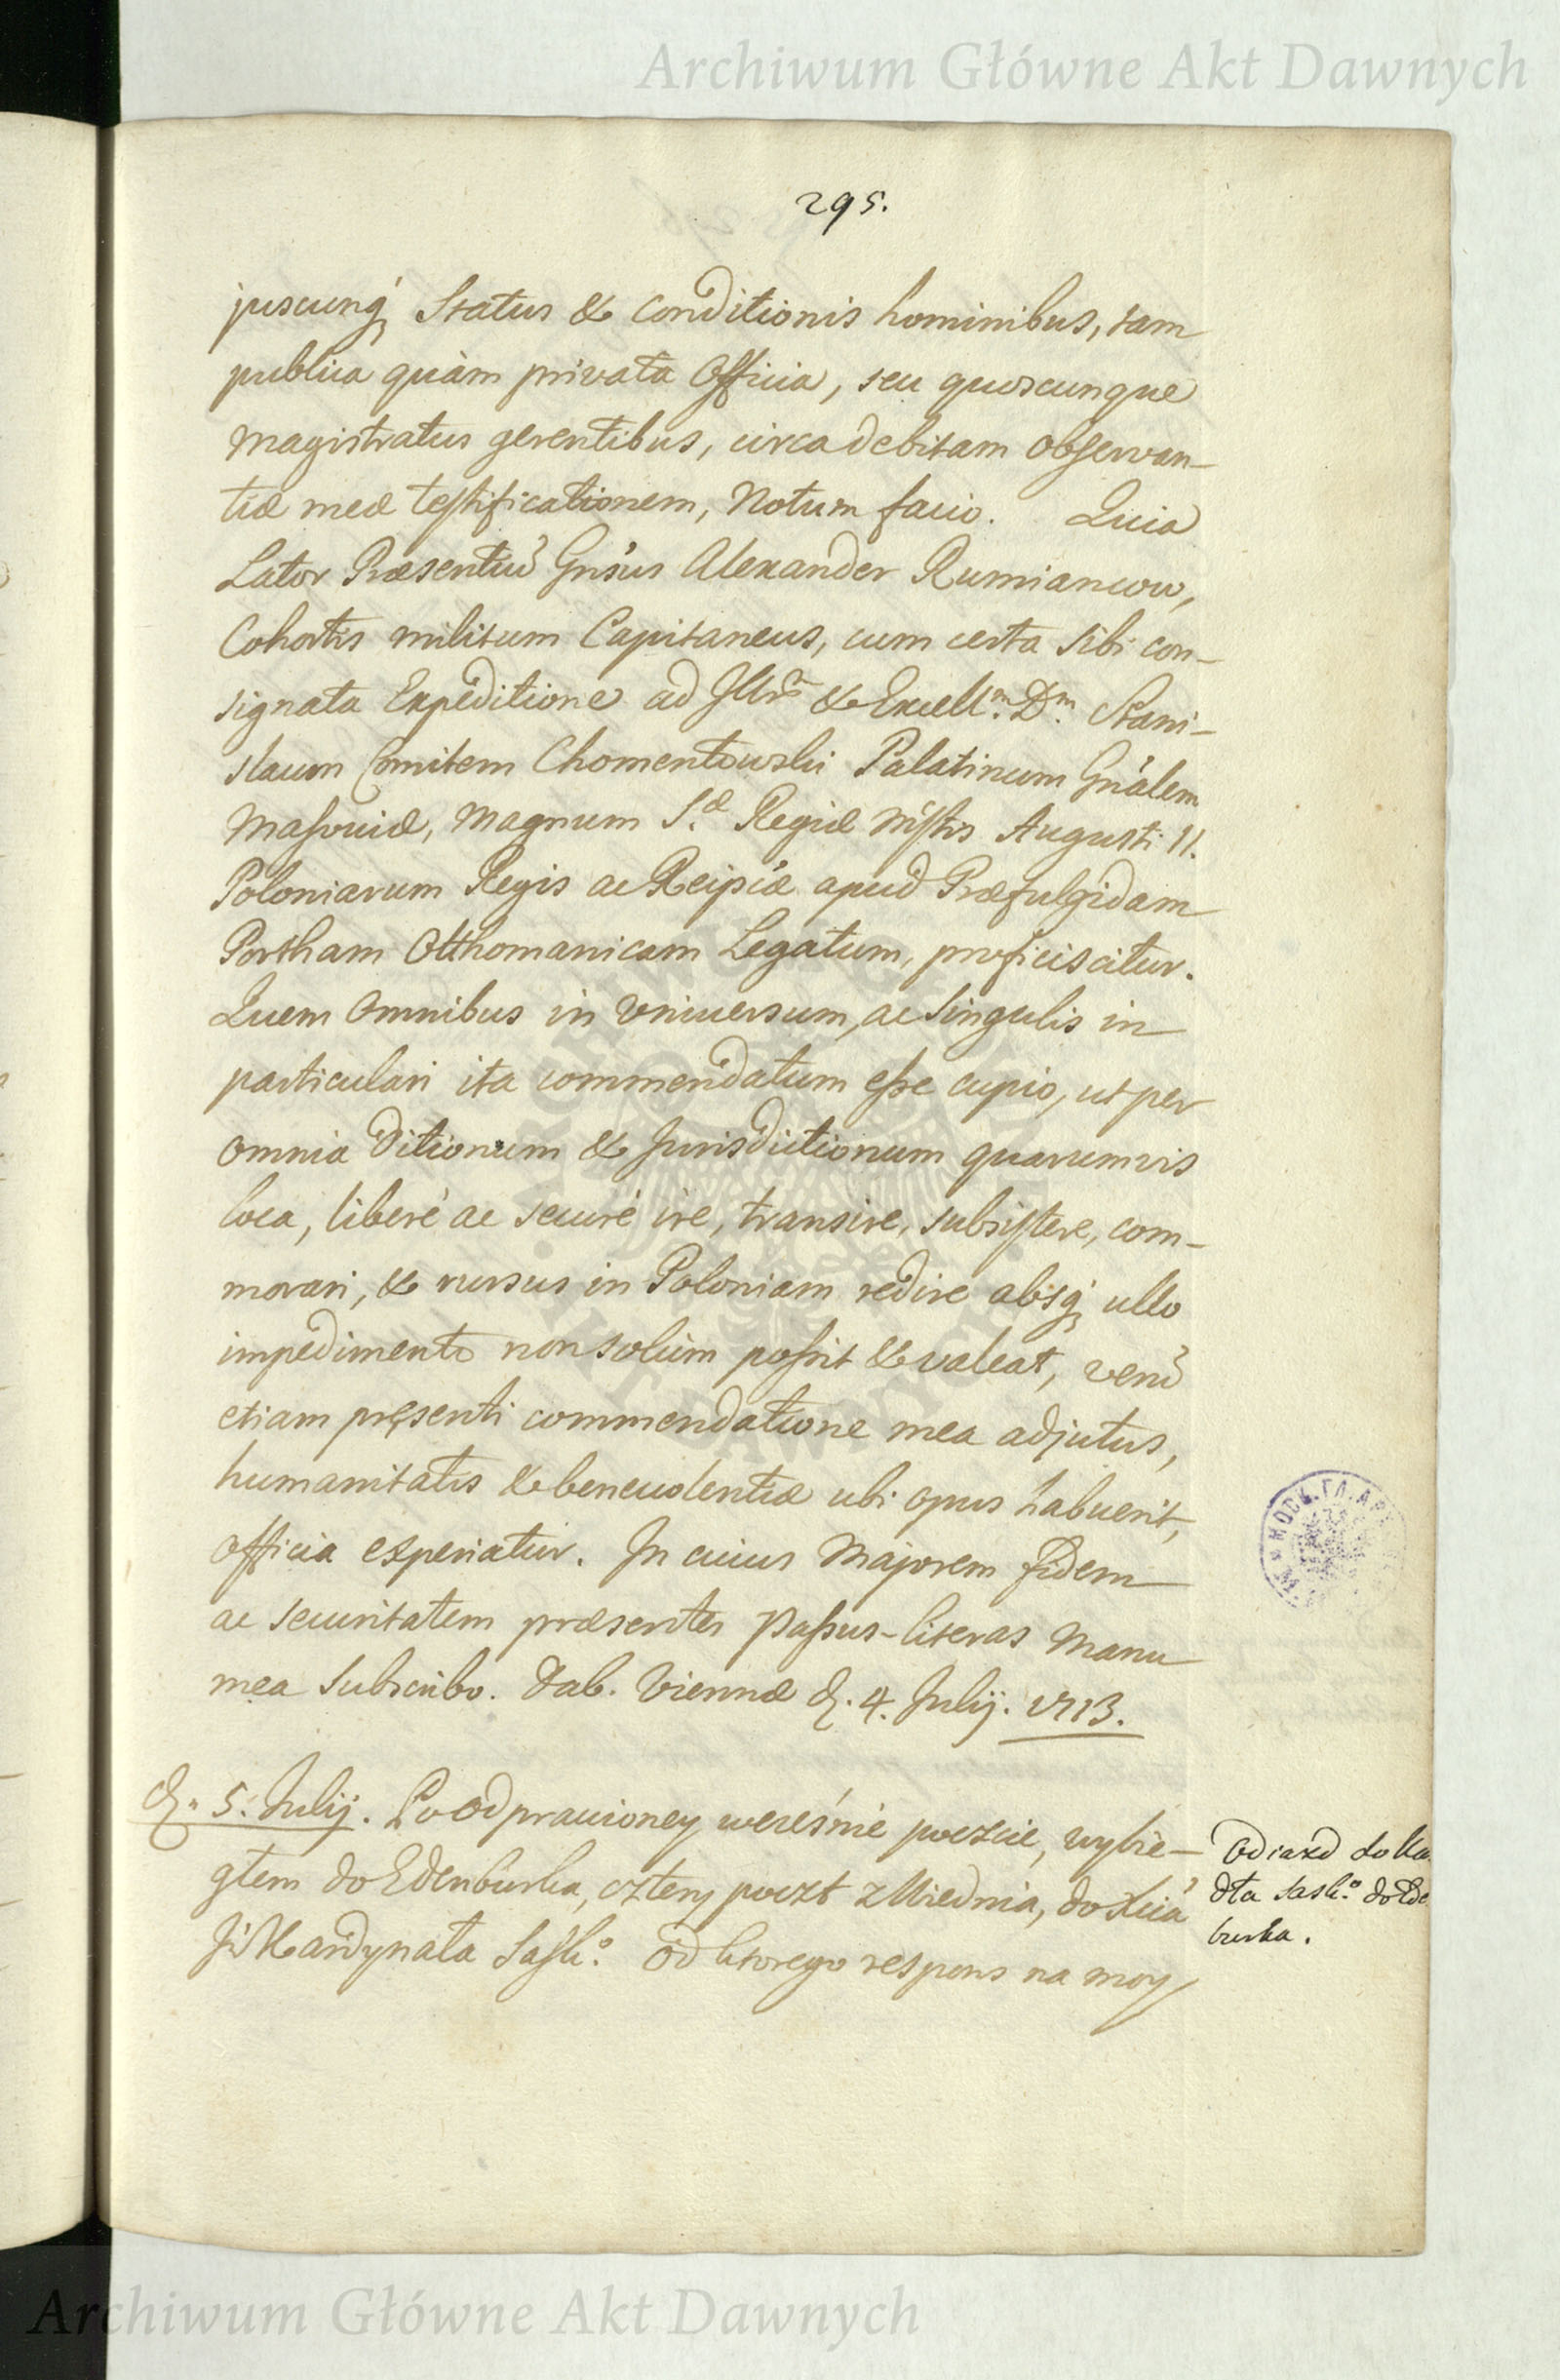 Archiwum Główne Akt Dawnych
295.
juscunq́, Status & Conditionis hominibus, tam
publica quàm privata Officia, seu quoscunque
Magistratus gerentibus, circa debitam Observan-
tiæ meæ testificationem, Notum facio. Quia
Lator Præsentiũ Gnsús Alexander Rumiancow,
Cohortis militum Capitaneus, cum certa sibi con-
signata Expeditione ad Illrm̃ & Excell.m D.m Stani-
slaum Comitem Chomentowski Palatinum Gnálem
Masoviæ, Magnum S.æ Regiæ Mśtis Augusti II.
Poloniarum Regis ac Reipcæ apud Præfulgidam
Portham Otthomanicam Legatum, proficiscitur.
Quem Omnibus in Universum, ac Singulis in
particulari ita commendatum esse cupio, ut per
omnia Ditionum & Jurisdictionum quarumvis
loca, liberè ac securè ire, transire, subsistere, com-
morari, & rursus in Poloniam redire absq́, ullo
impedimento non solùm possit & valeat, verũ
etiam pręsenti commendatione mea adjutus,
humanitatis & benevolentiæ ubi opus habuerit,
officia experiatur. In cuius Majorem fidem
ac securitatem præsentes Passus-literas Manu
mea Subscribo. Dab. Viennæ d. 4. Julij. 1713.
d. 5. Julij. Po odprawioney wcześnie poczcie, wybie-
głem do Edenburka, cztery poczt z Wiednia, do Xcia
Ji Kardynała Sask.o od ktorego respons na moy
Odiazd do Ka
dła Sask.o do Ede
burka.
Archiwum Główne Akt Dawnych